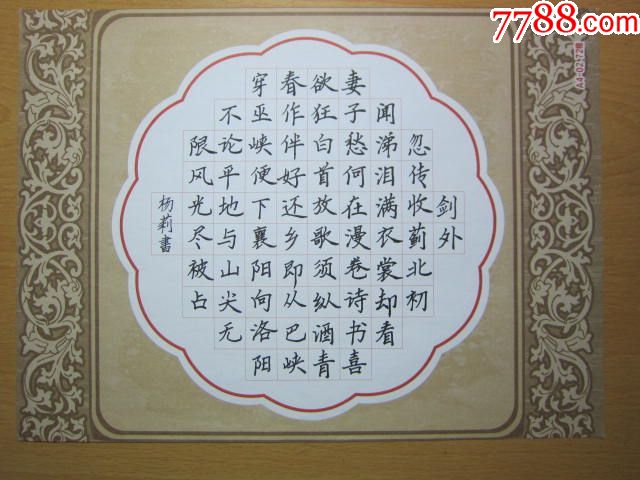 剑外
忽传收蓟北初
闻涕泪满衣裳却看
妻子愁何在漫卷诗书喜
欲狂白首放歌须纵酒青
春作伴好还乡即从巴峡
穿巫峡便下襄阳向洛阳
不论平地与山尖无
限风光尽被占
杨莉書
7788.com